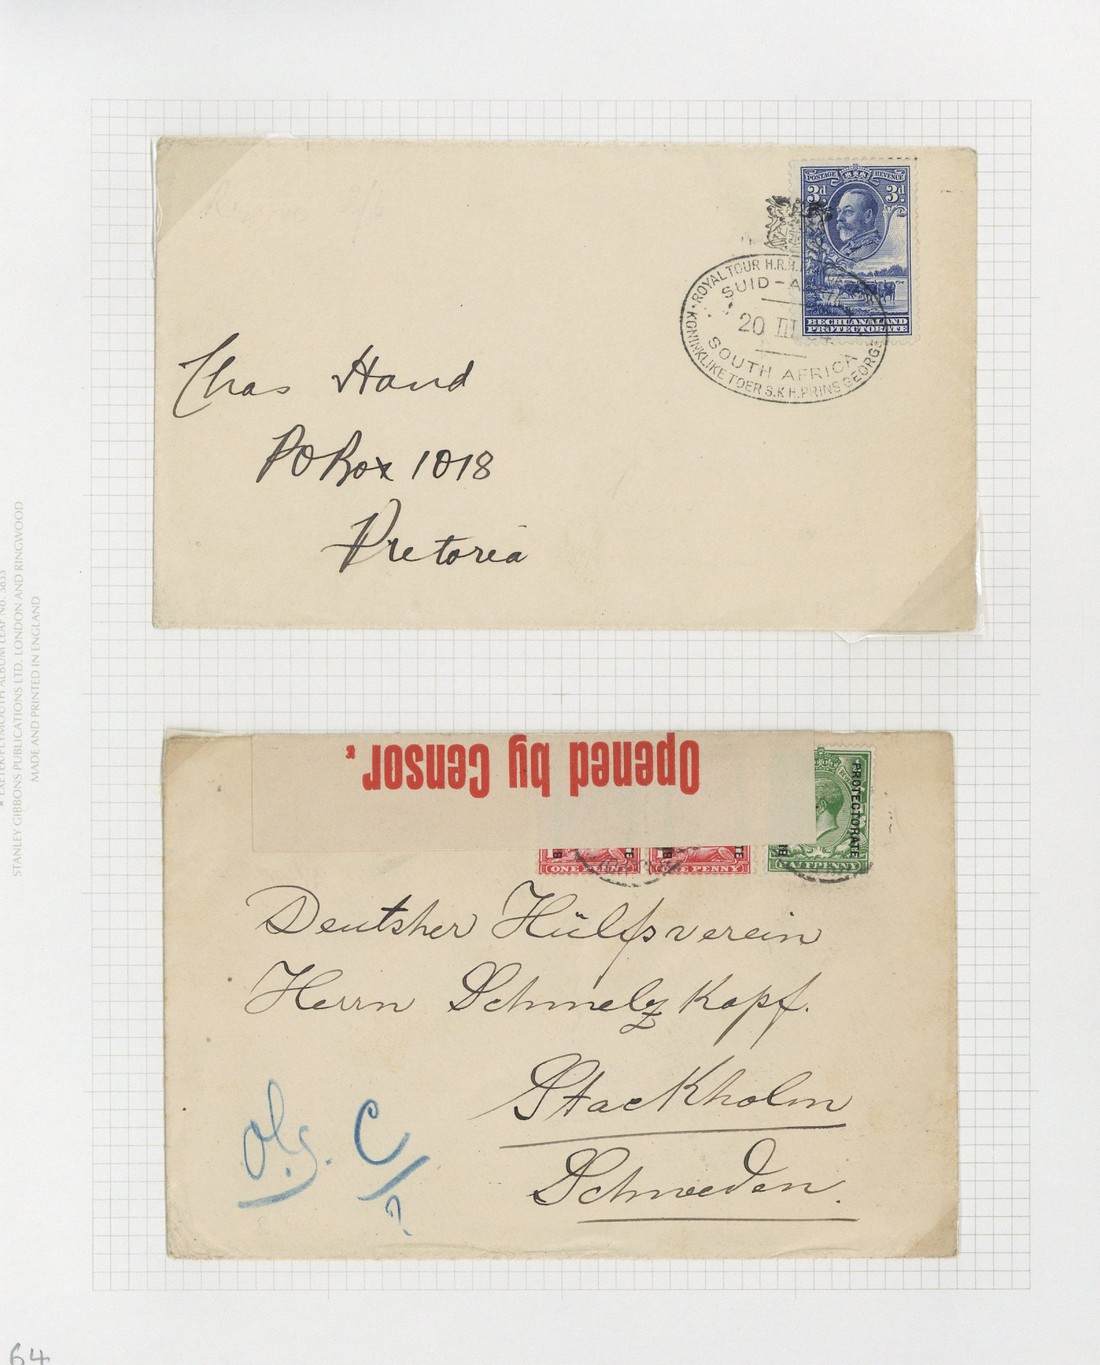 POSTAGE REVENUE
3d 3d
BECHUANALAND
PROTECTORATE
ROYAL TOUR H.R.H.
SUID-A
20 III
SOUTH AFRICA
KONINKLIKE TOER S.K.H. PRINS GEORGE
Chas Hand
PO Box 1018
Pretoria
EXETER/PLYMOUTH ALBUM LEAF No. 3833
STANLEY GIBBONS PUBLICATIONS LTD. LONDON AND RINGWOOD
MADE AND PRINTED IN ENGLAND
Opened by Censor.
PROTECTORATE
ONE PENNY
ONE PENNY
HALFPENNY
Deutsher Hülfsverein
Herrn Schmelzkopf.
Stackholm
Schweden.
C
?
64